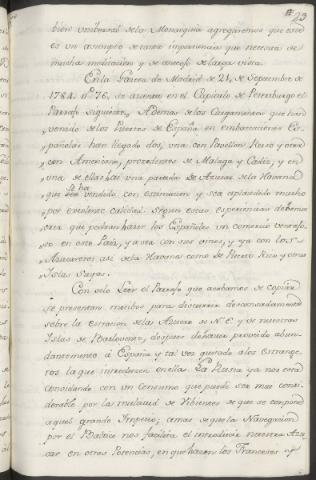 23
bien universal de la Monarquia agregaremos que este
es un asumpto de tanta importancia que necesita de
mucha meditacion y de consejo de larga vista.
En la Gazeta de Madrid de 21, de Septiembre de
1784. nº 76, se inserta en el Capitulo de Petersburgo el
Parrafo siguiente. Ademas de los Cargamentos que han
venido de los Puertos de España en embarcaciones Es-
pañolas han llegado dos, una con Pavellon Ruso y otra
con Americano, procedentes de Malaga y Cadiz, y en
una de ellas una partida de Azucar de la Havana
que se ha vendido con estimacion y sea aplaudido mucho
por excelente calidad. Segun estas esperiencias debemos
creer que podran hacer los Españoles un comercio ventajo-
so en este Pais, ya sea con sus vinos, y ya con los
Azucares asi de la Havana como de Puerto Rico y otras
Islas suyas.
Con solo Leer el Parrafo que acabamos de copiar
se presentan motivos para discurrir demoradamente
sobre la extracion de las Azucar de N. E. y de nuestras
Islas de Barlovento, despues de haver proveido abun-
dantemente á España y tal vez quitado a los estrange-
ros la que introducen en ella. La Rusia ya nos está
convidando con un Consumo que puede ser mui consi-
derable por la multitud de Vivientes de que se compone
aquel grande Imperio; a mas de que la Navegacion
por el Baltico nos facilita el introducir nuestra Azu-
car en otras Potencias, en que hacen los Franceses